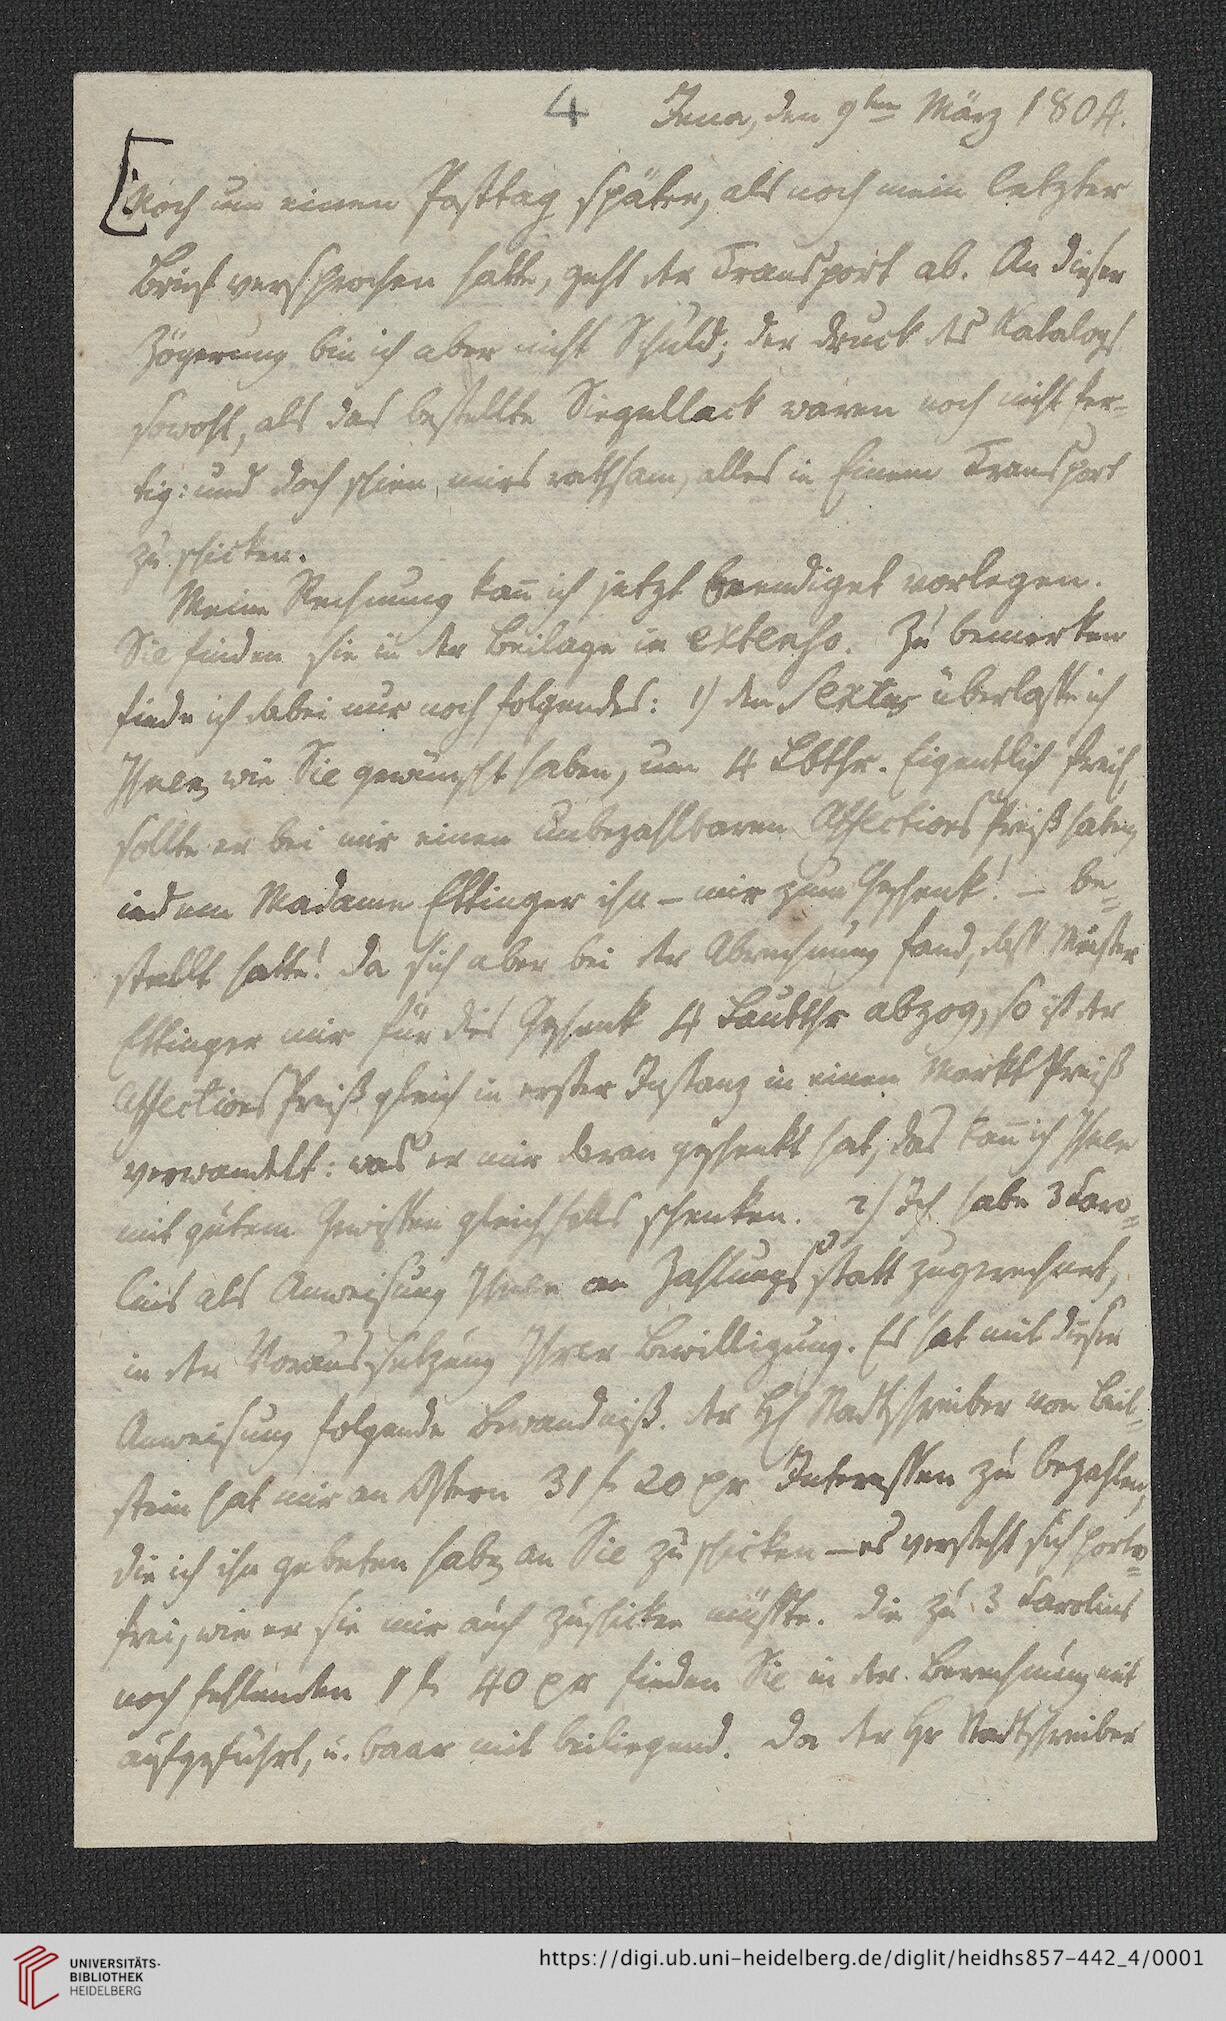 4 Jena, den 9ten März 1804.
Noch um einen Posttag später, als noch mein letzter
Brief versprochen hatte, geht der Transport ab. An dieser
Zögerung bin ich aber nicht Schuld; der Druck des Katalogs
sowohl, als das bestellte Siegellack waren noch nicht fer-
tig: und doch schien mirs rathsam, alles in Einem Transport
zu schicken.
Meine Rechnung kan̄ ich jetzt beendiget vorlegen.
Sie finden sie in der Beilage in extenso. Zu bemerken
finde ich dabei nur noch folgendes: 1) den Sextus überlasse ich
Ihnen, wie Sie gewünscht haben, um 4 Lbthr. Eigentlich
sollte er bei mir einen unbezahlbaren AffectionsPreiß haben,
indem Madame Ettinger ihn – mir zum Geschenk! – be-
stellt hatte! Da sich aber bei der Abrechnung fand, daß Mister
Ettinger mir für dies Geschenk 4 Laubthr abzog, so ist der
AffectionsPreiß gleich in erster Instanz in einen MarktPreiß
verwandelt: was er mir daran geschenkt hat, das kan̄ ich Ihnen
mit gutem Gewissen gleichfalls schenken. 2) Ich habe 3 Caro-
lins als Anweisung Ihnen an Zahlungs statt zugerechnet,
in der Voraussetzung Ihrer Bewilligung. Es hat mit dieser
Anweisung folgende Bewandniß. Der Hr Stadtschreiber von Beil-
stein hat mir an Ostern 31 f 20 xr Interessen zu bezahlen,
die ich ihn gebeten habe, an Sie zu schicken – es versteht sich porto-
frei, wie er sie mir auch zuschicken müßte. Die zu 3 Carolins
noch fehlenden 1 f 40 xr finden Sie in der Berechnung mit
aufgeführt, u. baar mit beiliegend. Da der Hr Stadtschreiber
UNIVERSITÄTS-
BIBLIOTHEK
HEIDELBERG
https://digi.ub.uni-heidelberg.de/diglit/heidhs857-442_4/0001